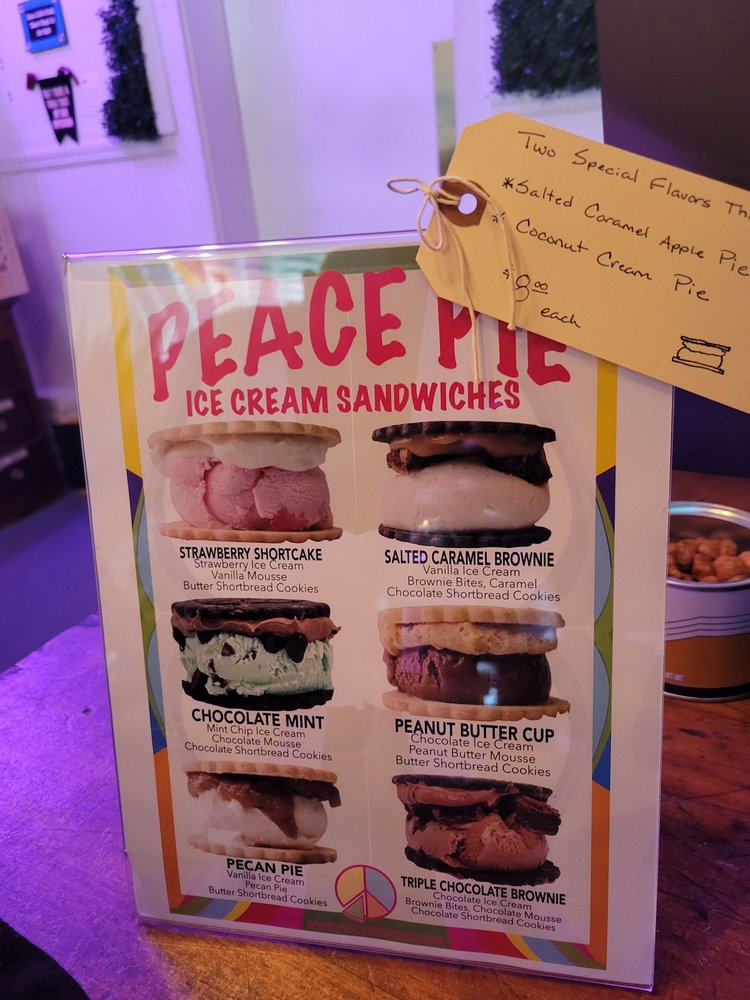 Two Special Flavors
*Salted Caramel Apple Pie
* Coconut Cream Pie
$8.00
each
PEACE PIE
ICE CREAM SANDWICHES
STRAWBERRY SHORTCAKE
Strawberry Ice Cream
Vanilla Mousse
Butter Shortbread Cookies
SALTED CARAMEL BROWNIE
Vanilla Ice Cream
Brownie Bites, Caramel
Chocolate Shortbread Cookies
CHOCOLATE MINT
Mint Chip Ice Cream
Chocolate Mousse
Chocolate Shortbread Cookies
PEANUT BUTTER CUP
Chocolate Ice Cream
Peanut Butter Mousse
Butter Shortbread Cookies
PECAN PIE
Vanilla Ice Cream
Pecan Pie
Butter Shortbread Cookies
TRIPLE CHOCOLATE BROWNIE
Chocolate Ice Cream
Brownie Bites, Chocolate Mousse
Chocolate Shortbread Cookies